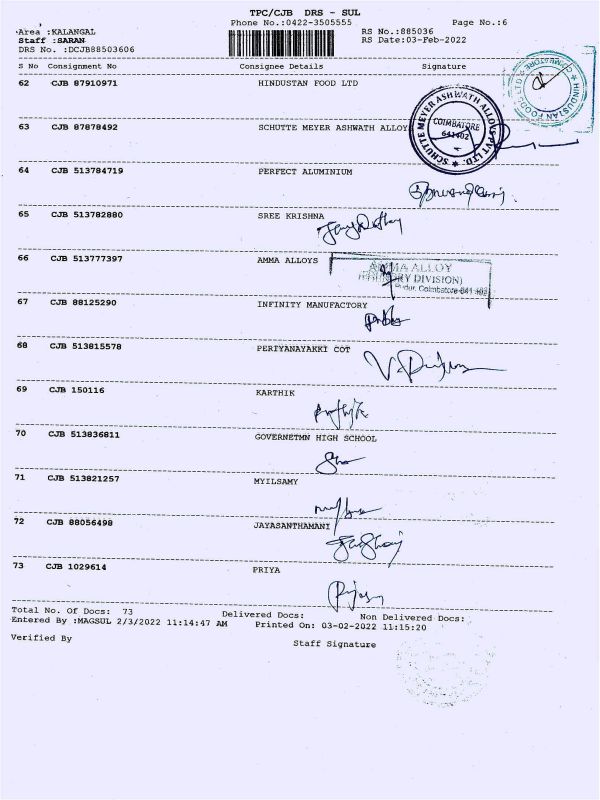 TPC/CJB DRS - SUL
Phone No.:0422-3505555 Page No.:6
Area :KALANGAL RS No.:885036
Staff :SARAN RS Date:03-Feb-2022
DRS No. :DCJB88503606
S No Consignment No Consignee Details Signature
62 CJB 87910971 HINDUSTAN FOOD LTD
HINDUSTAN FOODS LTD COIMBATORE
63 CJB 87878492 SCHUTTE MEYER ASHWATH ALLOY
SCHUTTE MEYER ASHWATH ALLOYS PVT. LTD.
COIMBATORE
641402
64 CJB 513784719 PERFECT ALUMINIUM
65 CJB 513782880 SREE KRISHNA
66 CJB 513777397 AMMA ALLOYS
AMMA ALLOY
DIVISION)
Coimbatore-641 402
67 CJB 88125290 INFINITY MANUFACTORY
68 CJB 513815578 PERIYANAYAKKI COT
69 CJB 150116 KARTHIK
70 CJB 513836811 GOVERNETMN HIGH SCHOOL
71 CJB 513821257 MYILSAMY
72 CJB 88056498 JAYASANTHAMANI
73 CJB 1029614 PRIYA
Total No. Of Docs: 73 Delivered Docs: Non Delivered Docs:
Entered By :MAGSUL 2/3/2022 11:14:47 AM Printed On: 03-02-2022 11:15:20
Verified By Staff Signature